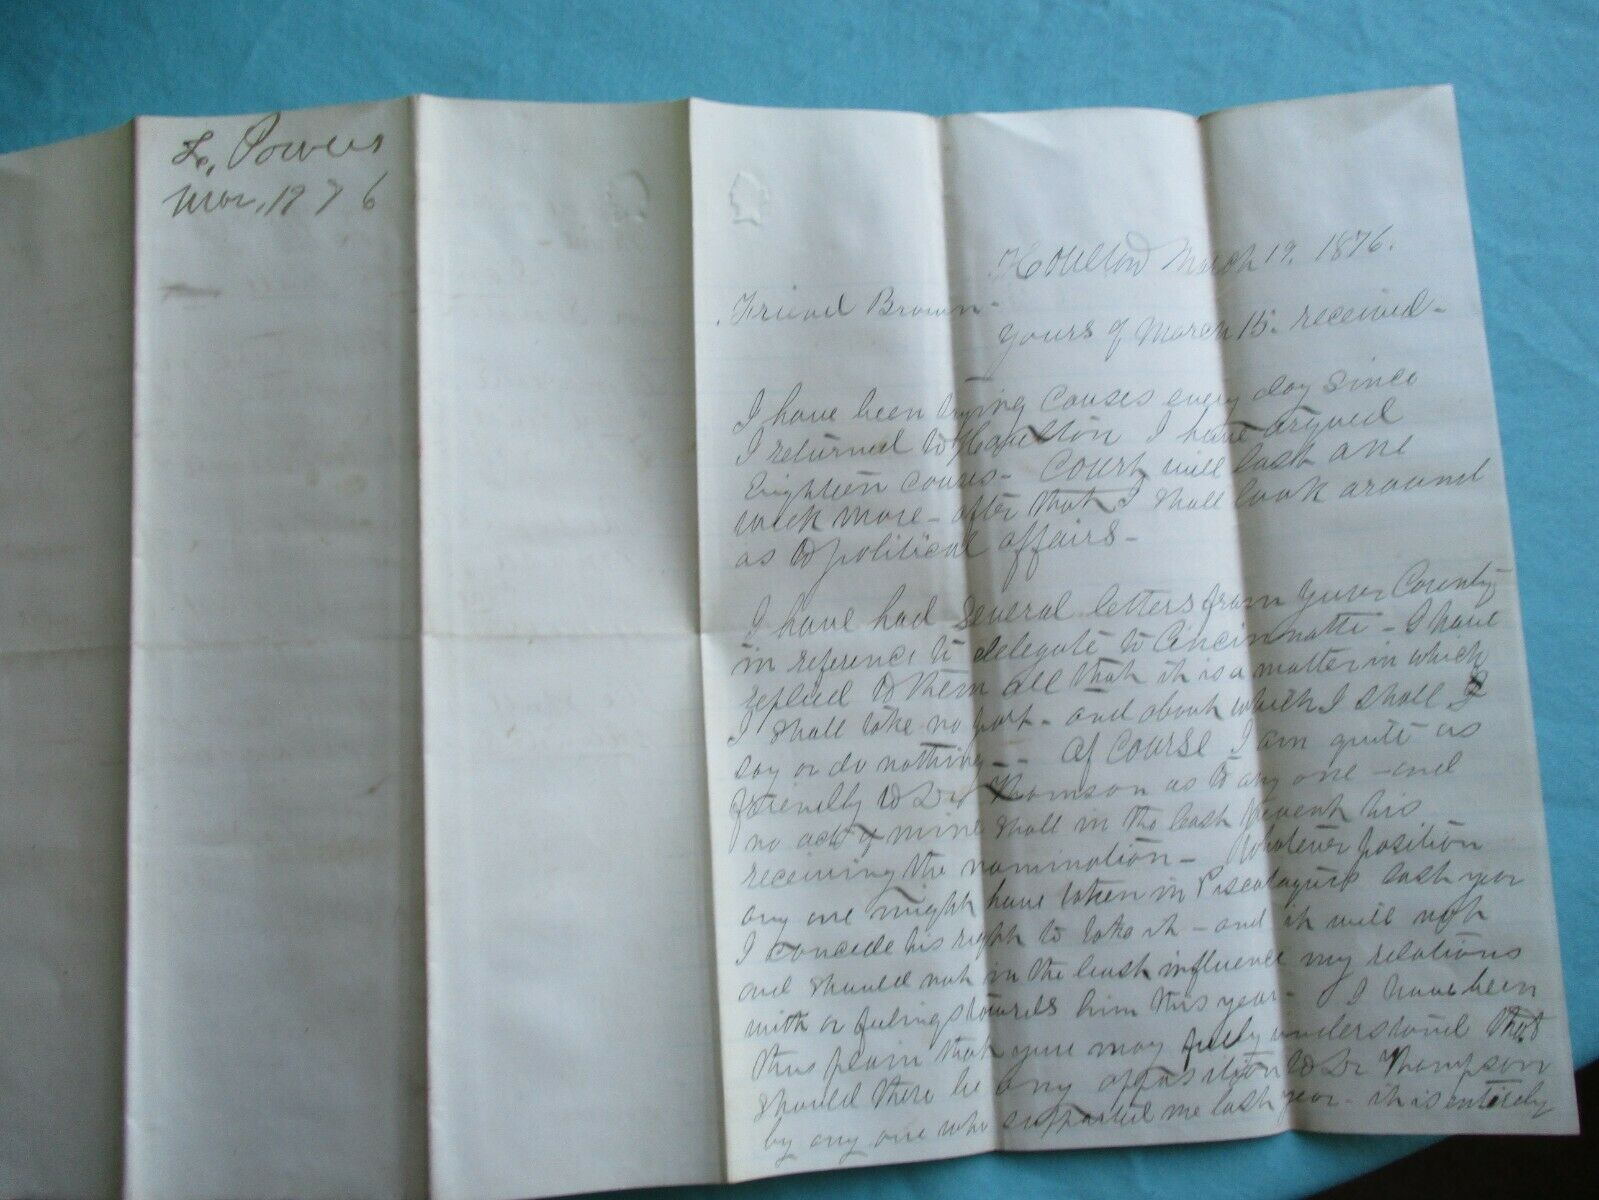 L. Powers
Mar, 1876
Houlton March 19, 1876.
Friend Brown -
Yours of March 15. received -
I have been trying causes every day since
I returned to Houlton I have argued
Eighteen causes - Court will last one
week more - after that I shall look around
as to political affairs -
I have had several letters from your County
in reference to delegate to Cincinnatti - I have
replied to them all that it is a matter in which
I shall take no part - and about which I shall
say or do nothing - - Of course I am quite as
friendly to Dr Thomson as to any one - and
no act of mine shall in the least prevent his
receiving the nomination - Whatever position
any one might have taken in Piscataquis last year
I concede his right to take it - and it will not
and should not in the least influence my relations
with or feelings towards him this year - I have been
thus plain that you may fully understand that
should there be any opposition to Dr Thompson
by any one who supported me last year - it is entirely